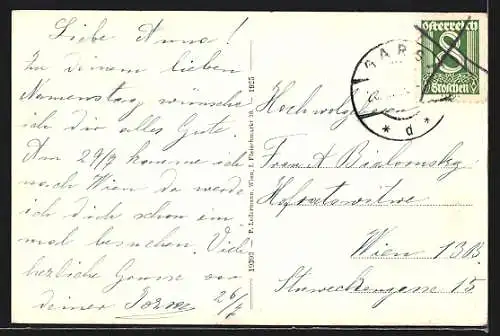 Liebe Anna!
Zu deinem lieben
Namenstag wünsche
ich dir alles Gute.
Am 29/7 komme ich
nach Wien da werde
ich dich schon ein
mal besuchen. Viele
herzliche Grüsse von
deiner
26/7
19200 – P. Ledermann, Wien, I. Fleischmarkt 16. 1925
Österreich
8
Groschen
GARS
* d *
Hochwohlgeboren
Frau A
Hofratswitwe
Wien 13B.
15